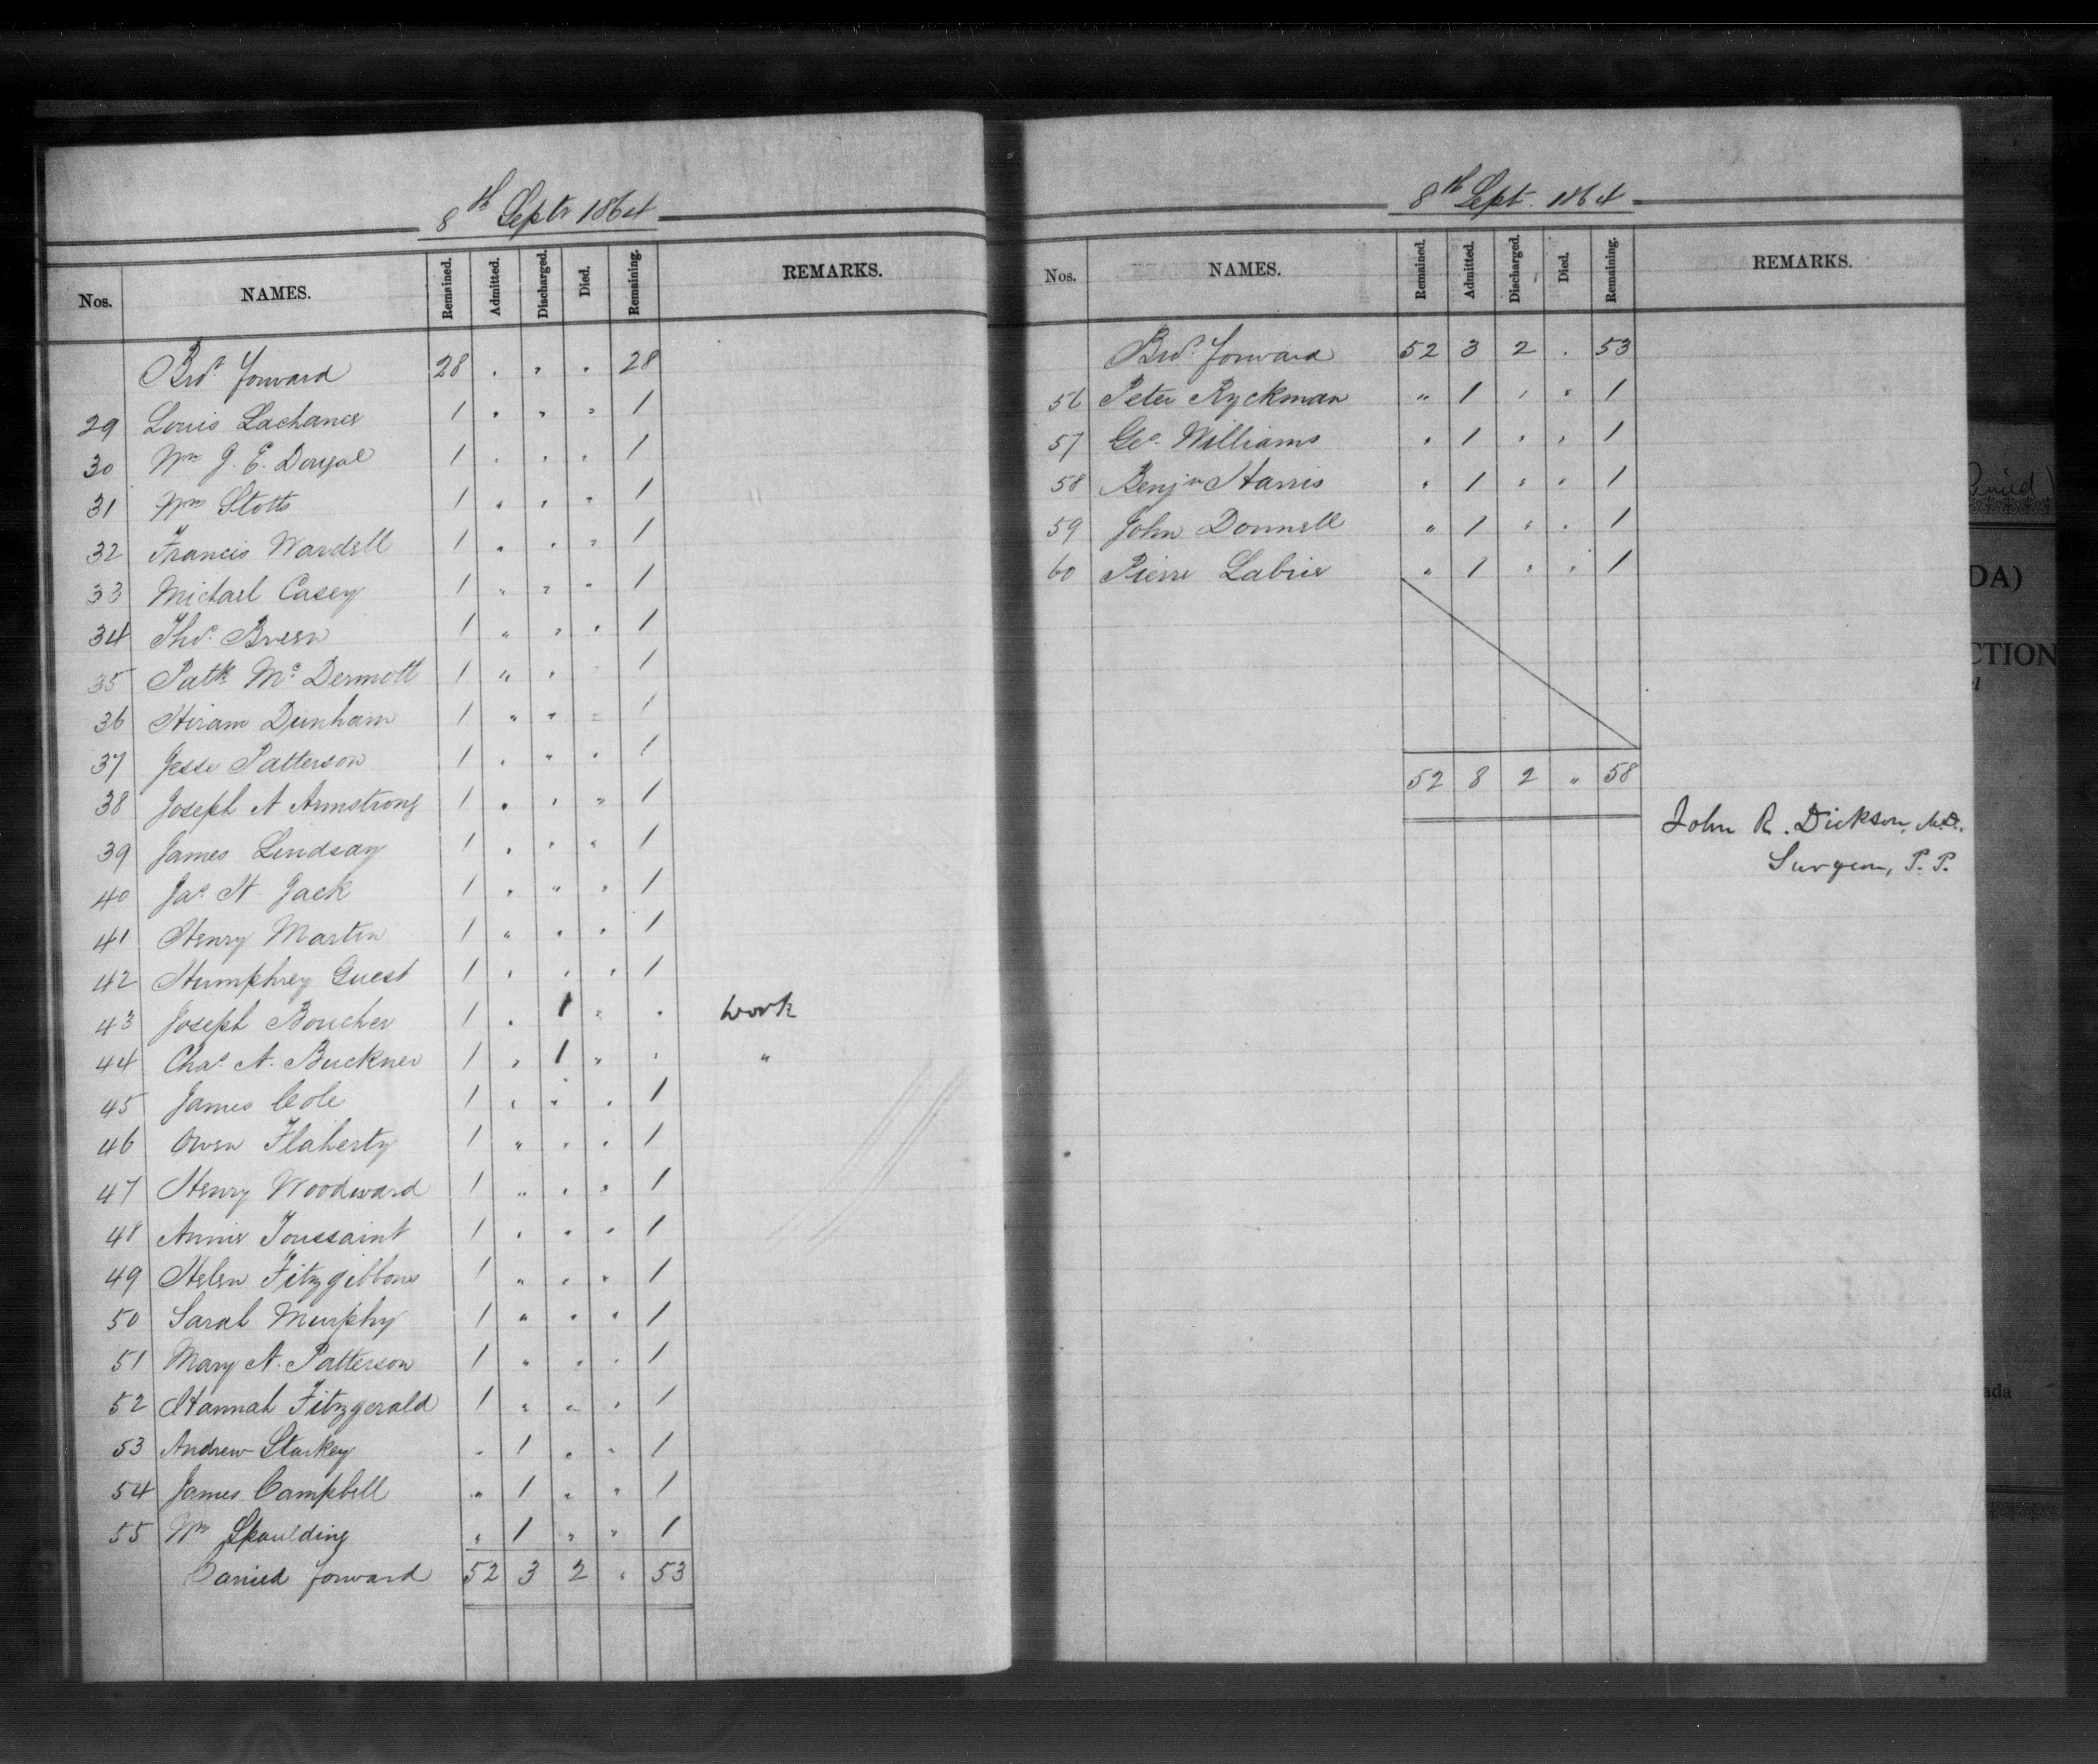 8th Septr 1864
Nos. NAMES. Remained. Admitted. Discharged. Died. Remaining. REMARKS.
Brot. forward 28 . " . 28
29 Louis Lachance 1 . " " 1
30 Wm J. E. Dougal 1 . " " 1
31 Wm Stotts 1 " " " 1
32 Francis Wardell 1 " " " 1
33 Michael Casey 1 " " " 1
34 Thos. Breen 1 " " " 1
35 Patk. Mc Dermott 1 " " 1
36 Hiram Dunham 1 " " " 1
37 Jesse Patterson 1 " " " 1
38 Joseph A Armstrong 1 " " " 1
39 James Lindsay 1 " " " 1
40 Jas. H. Jack 1 " " " 1
41 Henry Martin 1 " " " 1
42 Humphrey Guest 1 " " " 1
43 Joseph Boucher 1 " 1 " " work
44 Chas. A. Buckner 1 " 1 " " "
45 James Cole 1 " " " 1
46 Owen Flaherty 1 " " " 1
47 Henry Woodward 1 " " " 1
48 Annie Toussaint 1 " " " 1
49 Helen Fitzgibbons 1 " " " 1
50 Sarah Murphy 1 " " " 1
51 Mary A. Patterson 1 " " " 1
52 Hannah Fitzgerald 1 " " " 1
53 Andrew Starkey " 1 " " 1
54 James Campbell " 1 " " 1
55 Wm Spaulding " 1 " " 1
Carried forward 52 3 2 " 53
8th Sept. 1864
Nos. NAMES. Remained. Admitted. Discharged. Died. Remaining. REMARKS.
Brot. forward 52 3 2 . 53
56 Peter Ryckman " 1 " " 1
57 Geo. Williams " 1 " " 1
58 Benjn Harris " 1 " " 1
59 John Donnell " 1 " " 1
60 Pierre Labrie " 1 " " 1
52 8 2 " 58
John R. Dickson, M.D.,
Surgeon, P. P.
DA)
CTION
ada